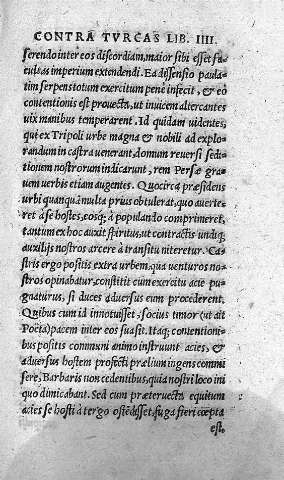 CONTRA TVRCAS LIB. IIII.
serendo inter eos discordiam, maior sibi esset fa-
cultas imperium extendendi. Ea dissensio paula-
tim serpens totum exercitum penè infecit, & eò
contentionis est prouecta, ut inuicem altercantes
uix manibus temperarent. Id quidam uidentes,
qui ex Tripoli urbe magna & nobili ad explo-
randum in castra uenerant, domum reuersi sedi-
tionem nostrorum indicarunt, rem Persæ gra-
uem uerbis etiam augentes. Quocirca præsidens
urbi quanquã multa prius obtulerat, quo auerte-
ret à se hostes, eosq; à populando comprimeret,
tantum ex hoc auxit spiritus, ut contractis undiq;
auxilijs nostros arcere à transitu niteretur. Ca-
stris ergo positis extra urbem, qua uenturos no-
stros opinabatur, cõstitit cum exercitu acie pu-
gnaturus, si duces aduersus eum procederent.
Quibus cum id innotuisset, socius timor (ut ait
Poëta) pacem inter eos suasit. Itaq; contentioni-
bus positis communi animo instruunt acies, &
aduersus hostem profecti prælium ingens commi
sere, Barbaris non cedentibus, quia nostri loco ini
quo dimicabant. Sed cum præteruecta equitum
acies se hosti à tergo ostẽdisset, fuga fieri cœpta
est,